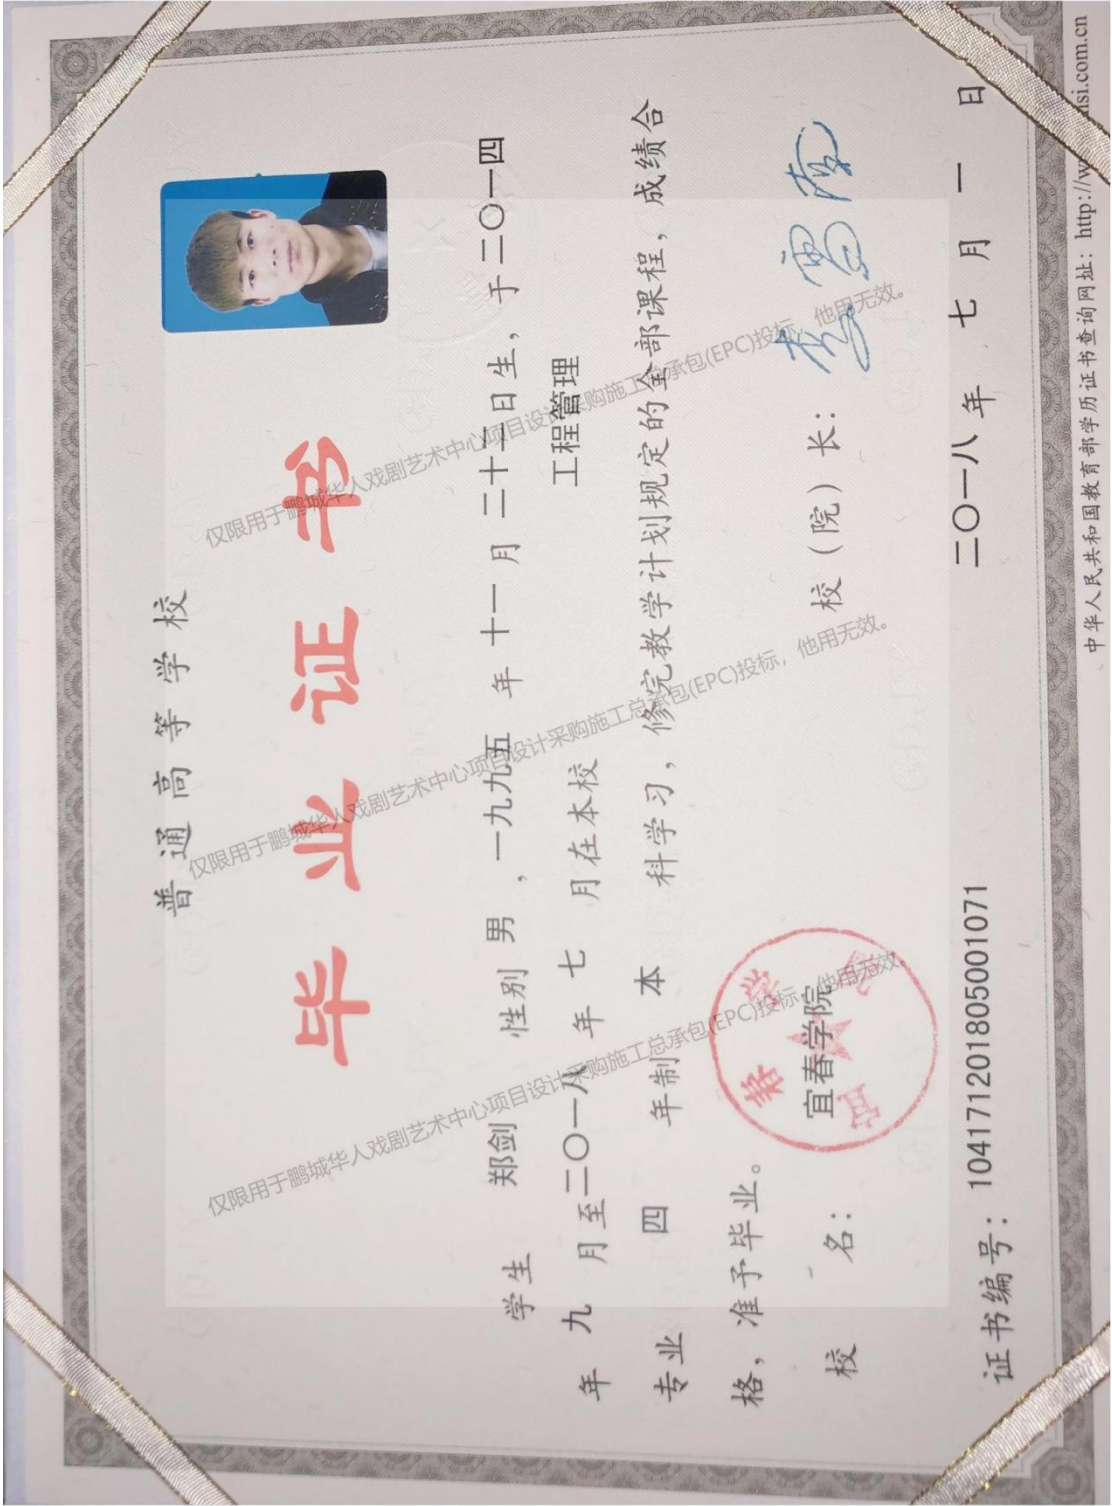 普通高等学校
毕业证书
学生 郑剑 性别 男 ,一九九五 年 十一 月 二十二日生，于二〇一四
年 九 月至二〇一八 年 七 月在本校 工程管理
专业 四 年制 本 科学习，修完教学计划规定的全部课程，成绩合
格，准予毕业。
校 名： 宜春学院 校（院）长：
证书编号：104171201805001071 二〇一八 年 七 月 一 日
中华人民共和国教育部学历证书查询网址：http://w si.com.cn
宜春学院
仅限用于鹏城华人戏剧艺术中心项目设计采购施工总承包(EPC)投标，他用无效。
仅限用于鹏城华人戏剧艺术中心项目设计采购施工总承包(EPC)投标，他用无效。
仅限用于鹏城华人戏剧艺术中心项目设计采购施工总承包(EPC)投标，他用无效。